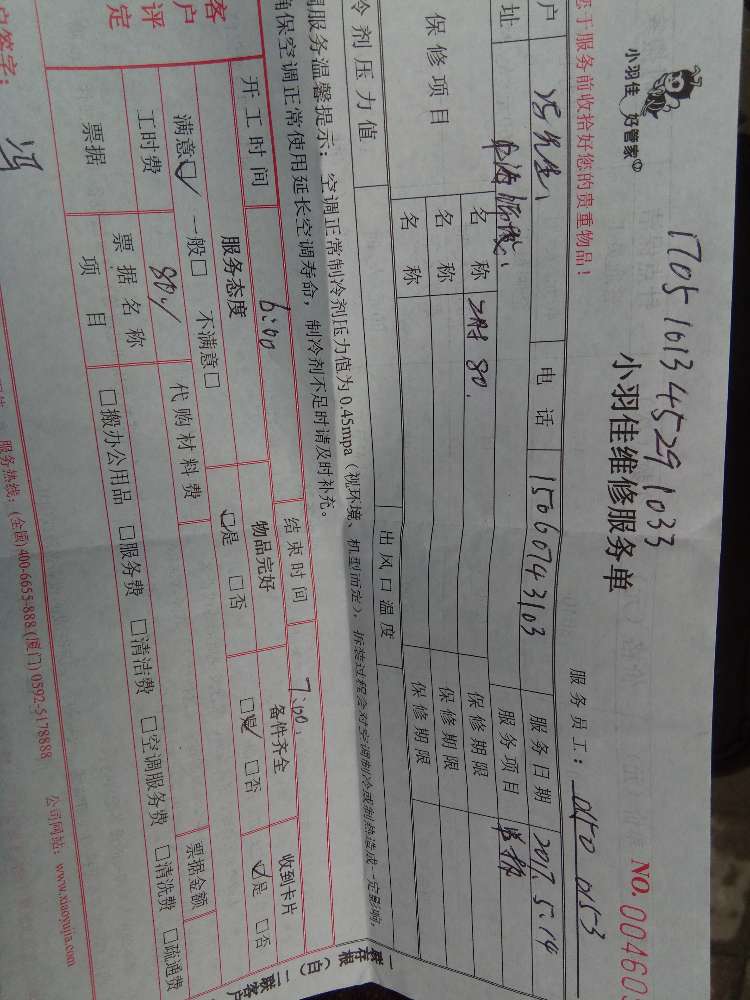 小羽佳 好管家
17051613 4529 1033
小羽佳维修服务单
服务员工： 0150 0153
NO. 00460
于服务前收拾好您的贵重物品！
户 冯先生 电话 15060743103 服务日期 2017.5.14
址 服务项目
保修项目 名称 80. 保修期限
名称 保修期限
名称 保修期限
冷剂压力值 出风口温度
服务温馨提示：空调正常制冷剂压力值为0.45mpa（视环境、机型而定），拆装过程会对空调制冷或制热造成一定影响，
保空调正常使用延长空调寿命，制冷剂不足时请及时补充。
开工时间 6:00 结束时间 7:00.
客户评定 服务态度 物品完好 备件齐全 收到卡片
满意☑ 一般□ 不满意□ ☑是 □否 ☑是 □否 ☑是 □否
工时费 80 代购材料费 票据金额
票据 票据名称
项目 □搬办公用品 □服务费 □清洁费 □空调服务费 □清洗费 □疏通费
户签字： 冯
服务热线：(全国)400-6655-888(厦门)0592-5178888 公司网站：www.xiaoyujia.com
一联存根（白）二联客户